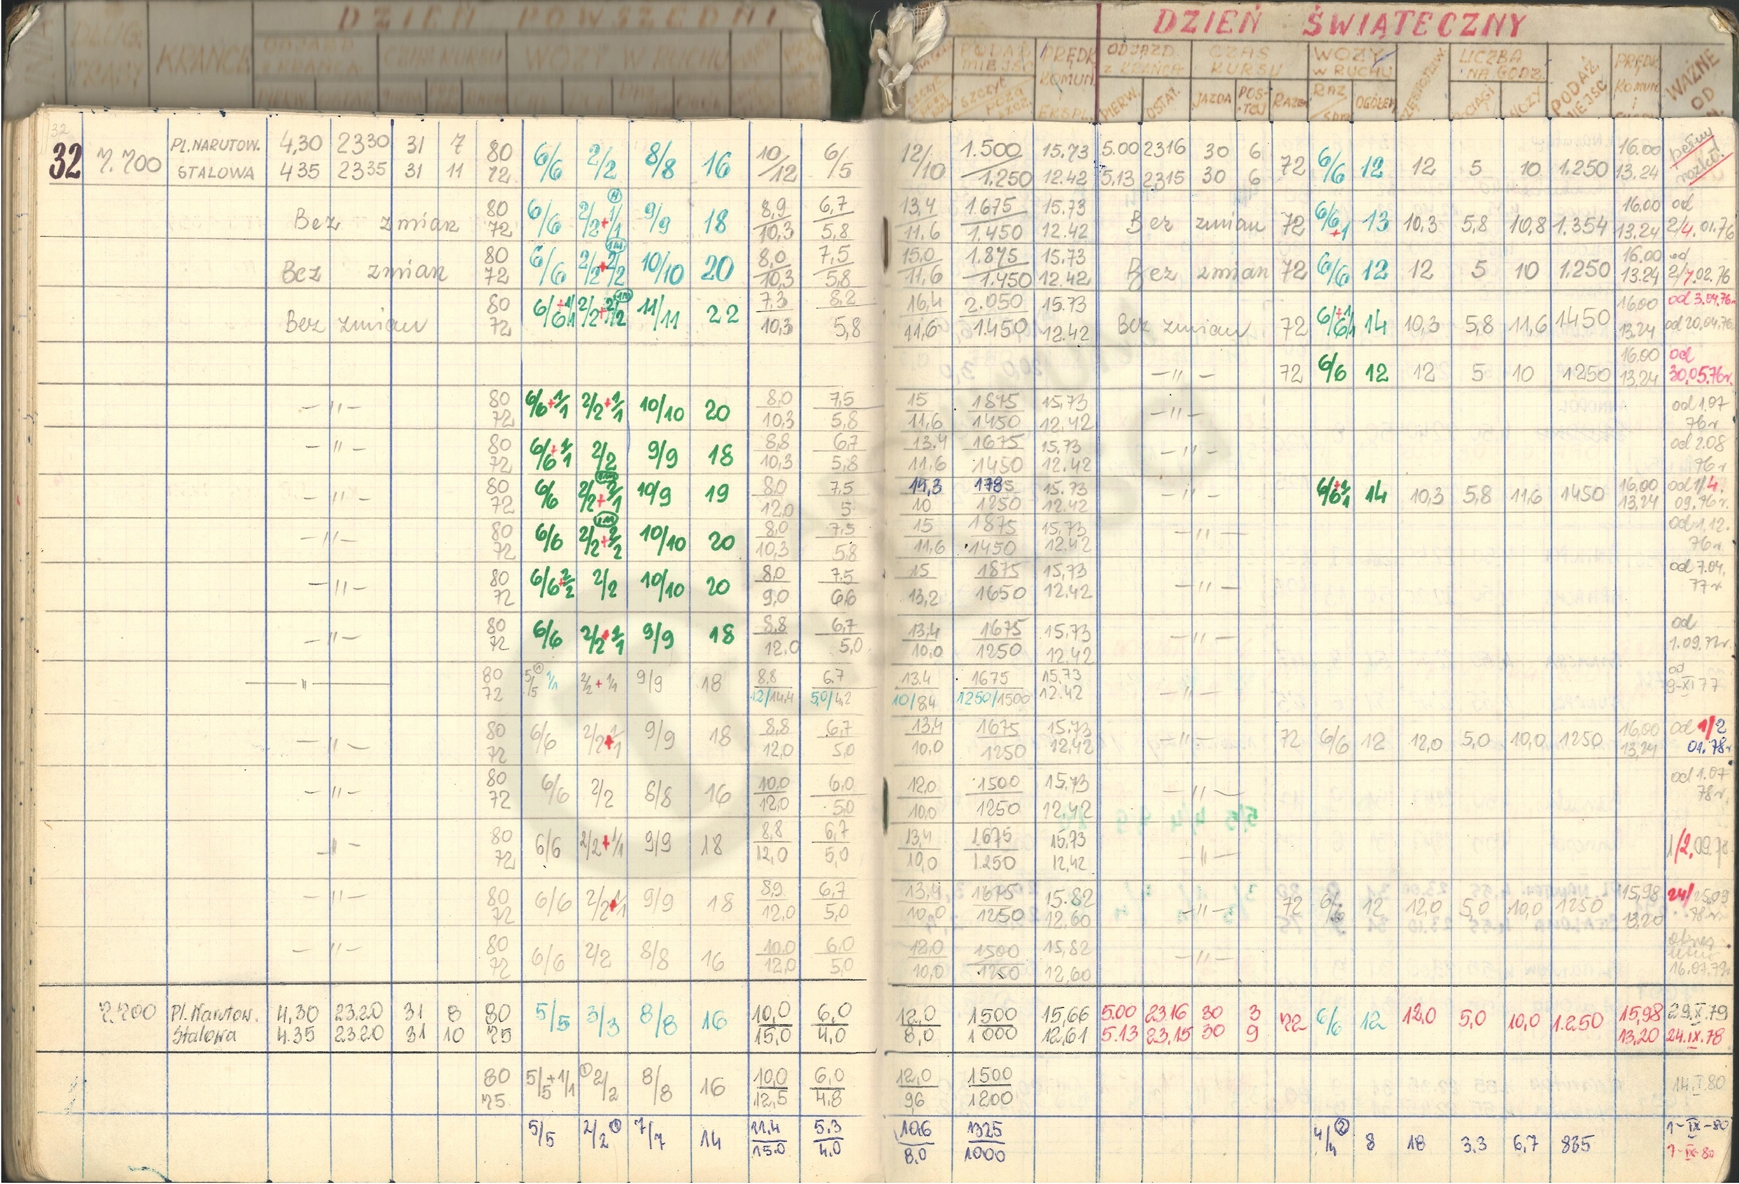 DZIEŃ POWSZEDNI
DZIEŃ ŚWIĄTECZNY
DŁUG. TRASY KRAŃCE ODJAZD Z KRAŃCA CZAS KURSU WOZY W RUCHU
PODAŻ MIEJSC PRĘDK. KOMUN. EKSPL. ODJAZD z KRAŃCA CZAS KURSU WOZY W RUCHU LICZBA NA GODZ. PODAŻ MIEJSC PRĘDK. KOMUN. i WAŻNE OD
PIERW. OSTAT. JAZDA POS-TÓJ RAZEM OGÓŁEM
32 7.700 PL.NARUTOW. 4,30 2330 31 7 80 6/6 2/2 8/8 16 10 6/ 12/ 1.500 15.73 5.00 2316 30 6 72 6/6 12 12 5 10 1.250 16.00 pełny
STALOWA 435 2335 31 11 72 /12 /5 /10 1.250 12.42 5.13 2315 30 6 13.24 rozkł.
Bez zmian 80 6/6 2/2+1/1 9/9 18 8,9 6,7 13,4 1675 15.73 Bez zmian 72 6/6+1 13 10,3 5,8 10,8 1.354 16.00 od
72 10,3 5,8 11.6 1.450 12.42 13.24 2/4.01.76
Bez zmian 80 6/6 2/2+2/2 10/10 20 8,0 7,5 15,0 1.875 15.73 Bez zmian 72 6/6 12 12 5 10 1.250 16.00 od
72 10,3 5,8 11.6 1.450 12.42 13.24 2/7.02.76
Bez zmian 80 6/6+1/1 2/2+2/2 11/11 22 7,3 8,2 16,4 2.050 15.73 Bez zmian 72 6/6+1/1 14 10,3 5,8 11,6 1450 16.00 od 3.04.76
72 10,3 5,8 11,6 1.450 12.42 13.24 od 20.04.76
—"— 72 6/6 12 12 5 10 1250 16.00 od
13.24 30.05.76r.
—"— 80 6/6+1/1 2/2+1/1 10/10 20 8,0 7,5 15 1875 15,73 —"— od 1.07
72 10,3 5,8 11,6 1450 12.42 76r
—"— 80 6/6+1/1 2/2 9/9 18 8.8 6,7 13.4 1675 15.73 —"— od 2.08
72 10,3 5,8 11.6 1450 12.42 76r
—"— 80 6/6 2/2+2/1 10/9 19 8.0 7.5 14,3 1785 15.73 —"— 6/6+1/1 14 10,3 5,8 11,6 1450 16.00 od 1/4.
72 12.0 5 10 1250 12.42 13.24 09.76r
—"— 80 6/6 2/2+2/2 10/10 20 8.0 7.5 15 1875 15,73 —"— od 1.12.
72 10,3 5,8 11,6 1450 12.42 76r.
—"— 80 6/6+2/2 2/2 10/10 20 8,0 7.5 15 1875 15,73 —"— od 7.04.
72 9,0 6,6 13,2 1650 12.42 77r
—"— 80 6/6 2/2+1/1 9/9 18 8,8 6,7 13,4 1675 15,73 —"— od
72 12.0 5,0 10,0 1250 12.42 1.09.77r.
—"— 80 5/5 1/1 2/2+1/1 9/9 18 8,8 6.7 13.4 1675 15.73 —"— od
72 12/14,4 5,0/4,2 10/8,4 1250/1500 12.42 9-XI 77
—"— 80 6/6 2/2+1/1 9/9 18 8,8 6,7 13,4 1675 15.73 —"— 72 6/6 12 12,0 5,0 10,0 1250 16,00 od 1/2
72 12,0 5.0 10,0 1250 12,42 13,24 01.78r
—"— 80 6/6 2/2 8/8 16 10,0 6.0 12.0 1500 15.73 —"— od 1.07
72 12,0 5,0 10,0 1250 12,42 78r.
—"— 80 6/6 2/2+1/1 9/9 18 8,8 6,7 13,4 1.675 15,73 —"— 1/2.09.78
72 12,0 5,0 10,0 1.250 12,42
—"— 80 6/6 2/2+1/1 9/9 18 8,9 6,7 13,4 1675 15.82 —"— 72 6/6 12 12,0 5,0 10,0 1250 15,98 24/25.09
72 12,0 5,0 10,0 1250 12.60 13,20 78r.
—"— 80 6/6 2/2 8/8 16 10.0 6.0 12.0 1500 15,82 —"—
72 12,0 5,0 10,0 1250 12,60 16.07.79r
7.700 Pl. Narutow. 4,30 23.20 31 8 80 5/5 3/3 8/8 16 10,0 6,0 12.0 1500 15,66 5.00 23.16 30 3 72 6/6 12 12,0 5,0 10,0 1.250 15,98 29.X.79
Stalowa 4.35 23.20 31 10 75 15,0 4,0 8,0 1000 12,61 5.13 23,15 30 9 13,20 24.IX.78
80 5/5+1/1 2/2 8/8 16 10,0 6,0 12,0 1500 14.I.80
75 12,5 4,8 9,6 1200
5/5 2/2 7/7 14 11.4 5.3 10,6 1325 4/4 8 18 3,3 6,7 835 1-IX-80
15.0 4.0 8.0 1000 1-IX-80